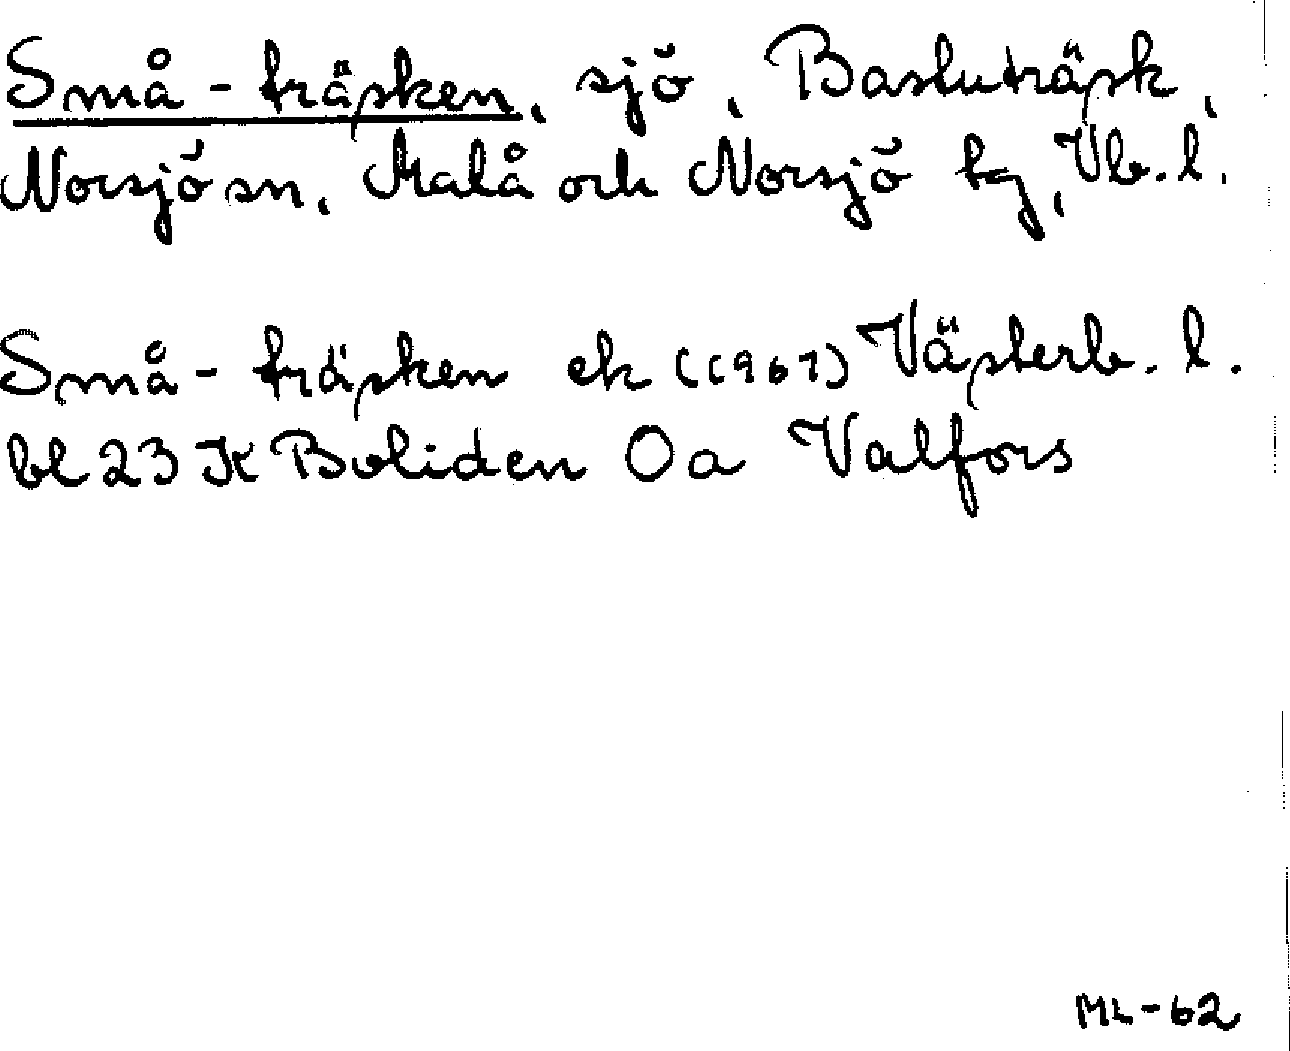 Små-träsken, sjö, Bastuträsk,
Norsjö sn, Malå och Norsjö tg, Vb. l.
Små-träsken ek (1961) Västerb. l.
bl 23 K Boliden Oa Valfors
ML-62